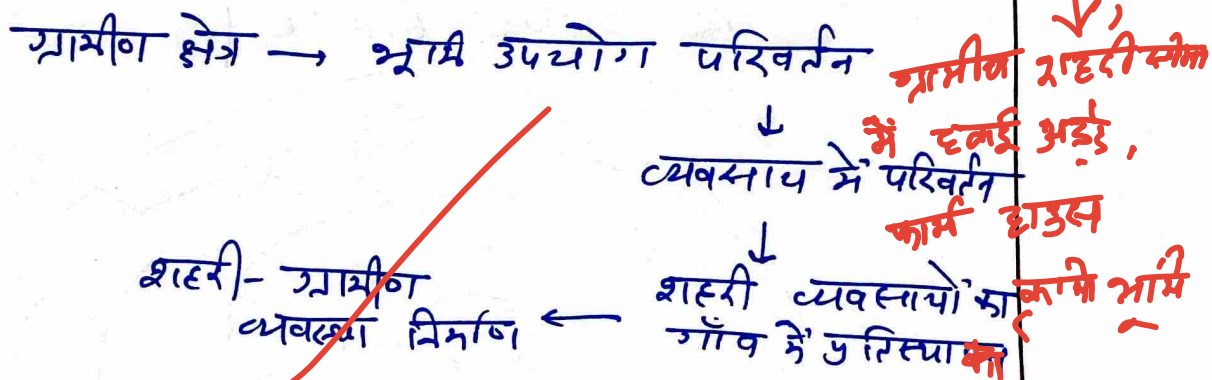 ग्रामीण क्षेत्र → भूमि उपयोग परिवर्तन
↓
व्यवसाय में परिवर्तन
↓
शहरी व्यवसायों का
गाँव में प्रतिस्था
शहरी- ग्रामीण
व्यवस्था निर्माण ←
ग्रामीण शहरी सीमा
में हवाई अड्डे,
फार्म हाउस
भूमि